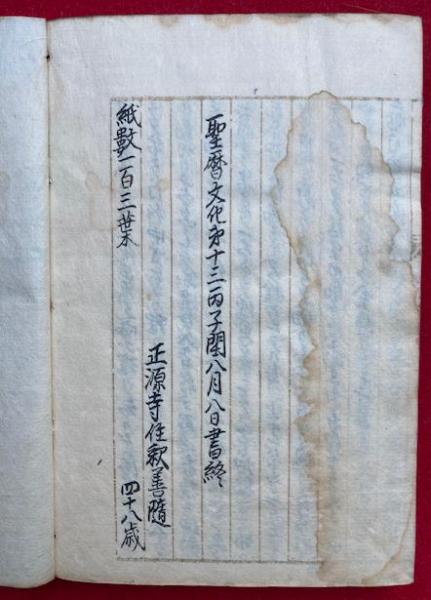 聖暦文化第十三丙子閏八月八日書終
正源寺住釈善隨
四十八歳
紙數一百三葉